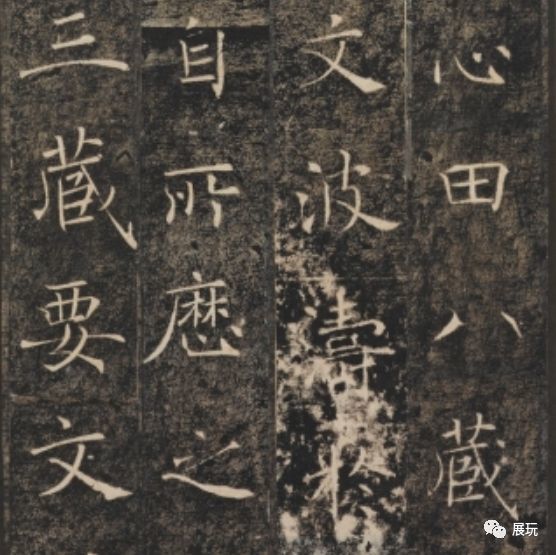 心田八藏
文波濤於
自所歷之
三藏要文
展玩